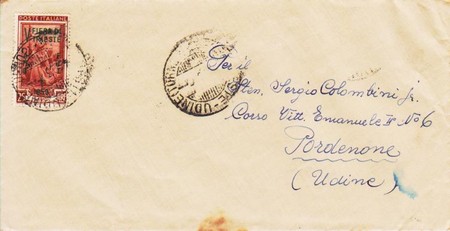 POSTE ITALIANE
FIERA DI
TRIESTE
UDINE
Per il
Sten. Sergio Colombini jr.
Corso Vitt. Emanuele II No 6
Pordenone
(Udine)